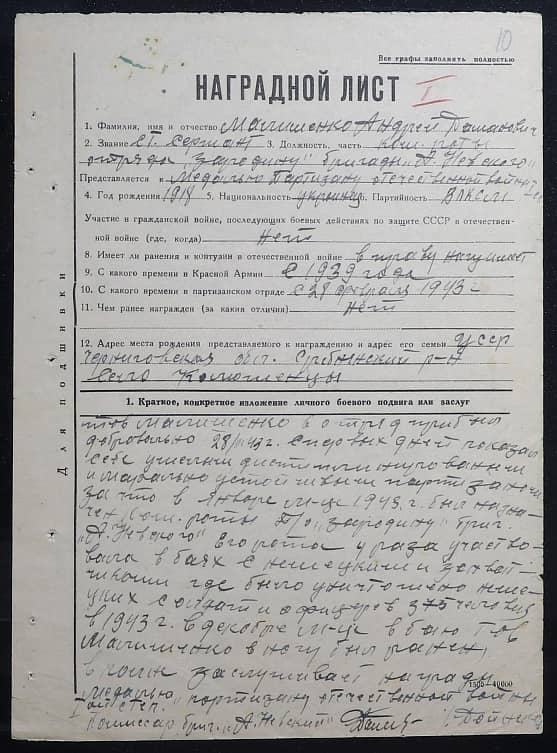 10
Все графы заполнять полностью
НАГРАДНОЙ ЛИСТ I
1. Фамилия, имя и отчество Малишенко Андрей
2. Звание ст сержант 3. Должность, часть ком. роты
отряда "За родину" бригады "А. Невского"
Представляется к Медалью Партизану отечественной войны
4. Год рождения 1918 5. Национальность украинец 6. Партийность ВЛКСМ
Участие в гражданской войне, последующих боевых действиях по защите СССР и отечествен-
ной войне (где, когда) Нет
8. Имеет ли ранения и контузии в отечественной войне в праву ногу имеет
9. С какого времени в Красной Армии С 1939 года
10. С какого времени в партизанском отряде с 28 февраля 1943 г
11. Чем ранее награжден (за какия отличия) Нет
12. Адрес места рождения представляемого к награждению и адрес его семьи УССР
Черниговская обл. р-н
село
1. Краткое, конкретное изложение личного боевого подвига или заслуг
Тов Малишенко в отряд прибыл
добровольно 28/ 43 г. С первых дней показал
себя умелым дисциплинированным
и морально устойчивым партизаном
за что в Январе м-це 1943 г. был назна-
чен Ком. роты "за родину" бриг.
"А. Невского" Его рота раза участво-
вала в боях с немецкими захват-
чиками где было уничтожено неме-
цких солдат и офицеров человек
в 1943 г. в декабре м-це в бою Тов
Малишенко в ногу был ранен
заслуживает награды
Медалью "партизану отечественной войны
I ой степ."
Комиссар бриг. "А. Невский"
1500 40000
Для подшивки